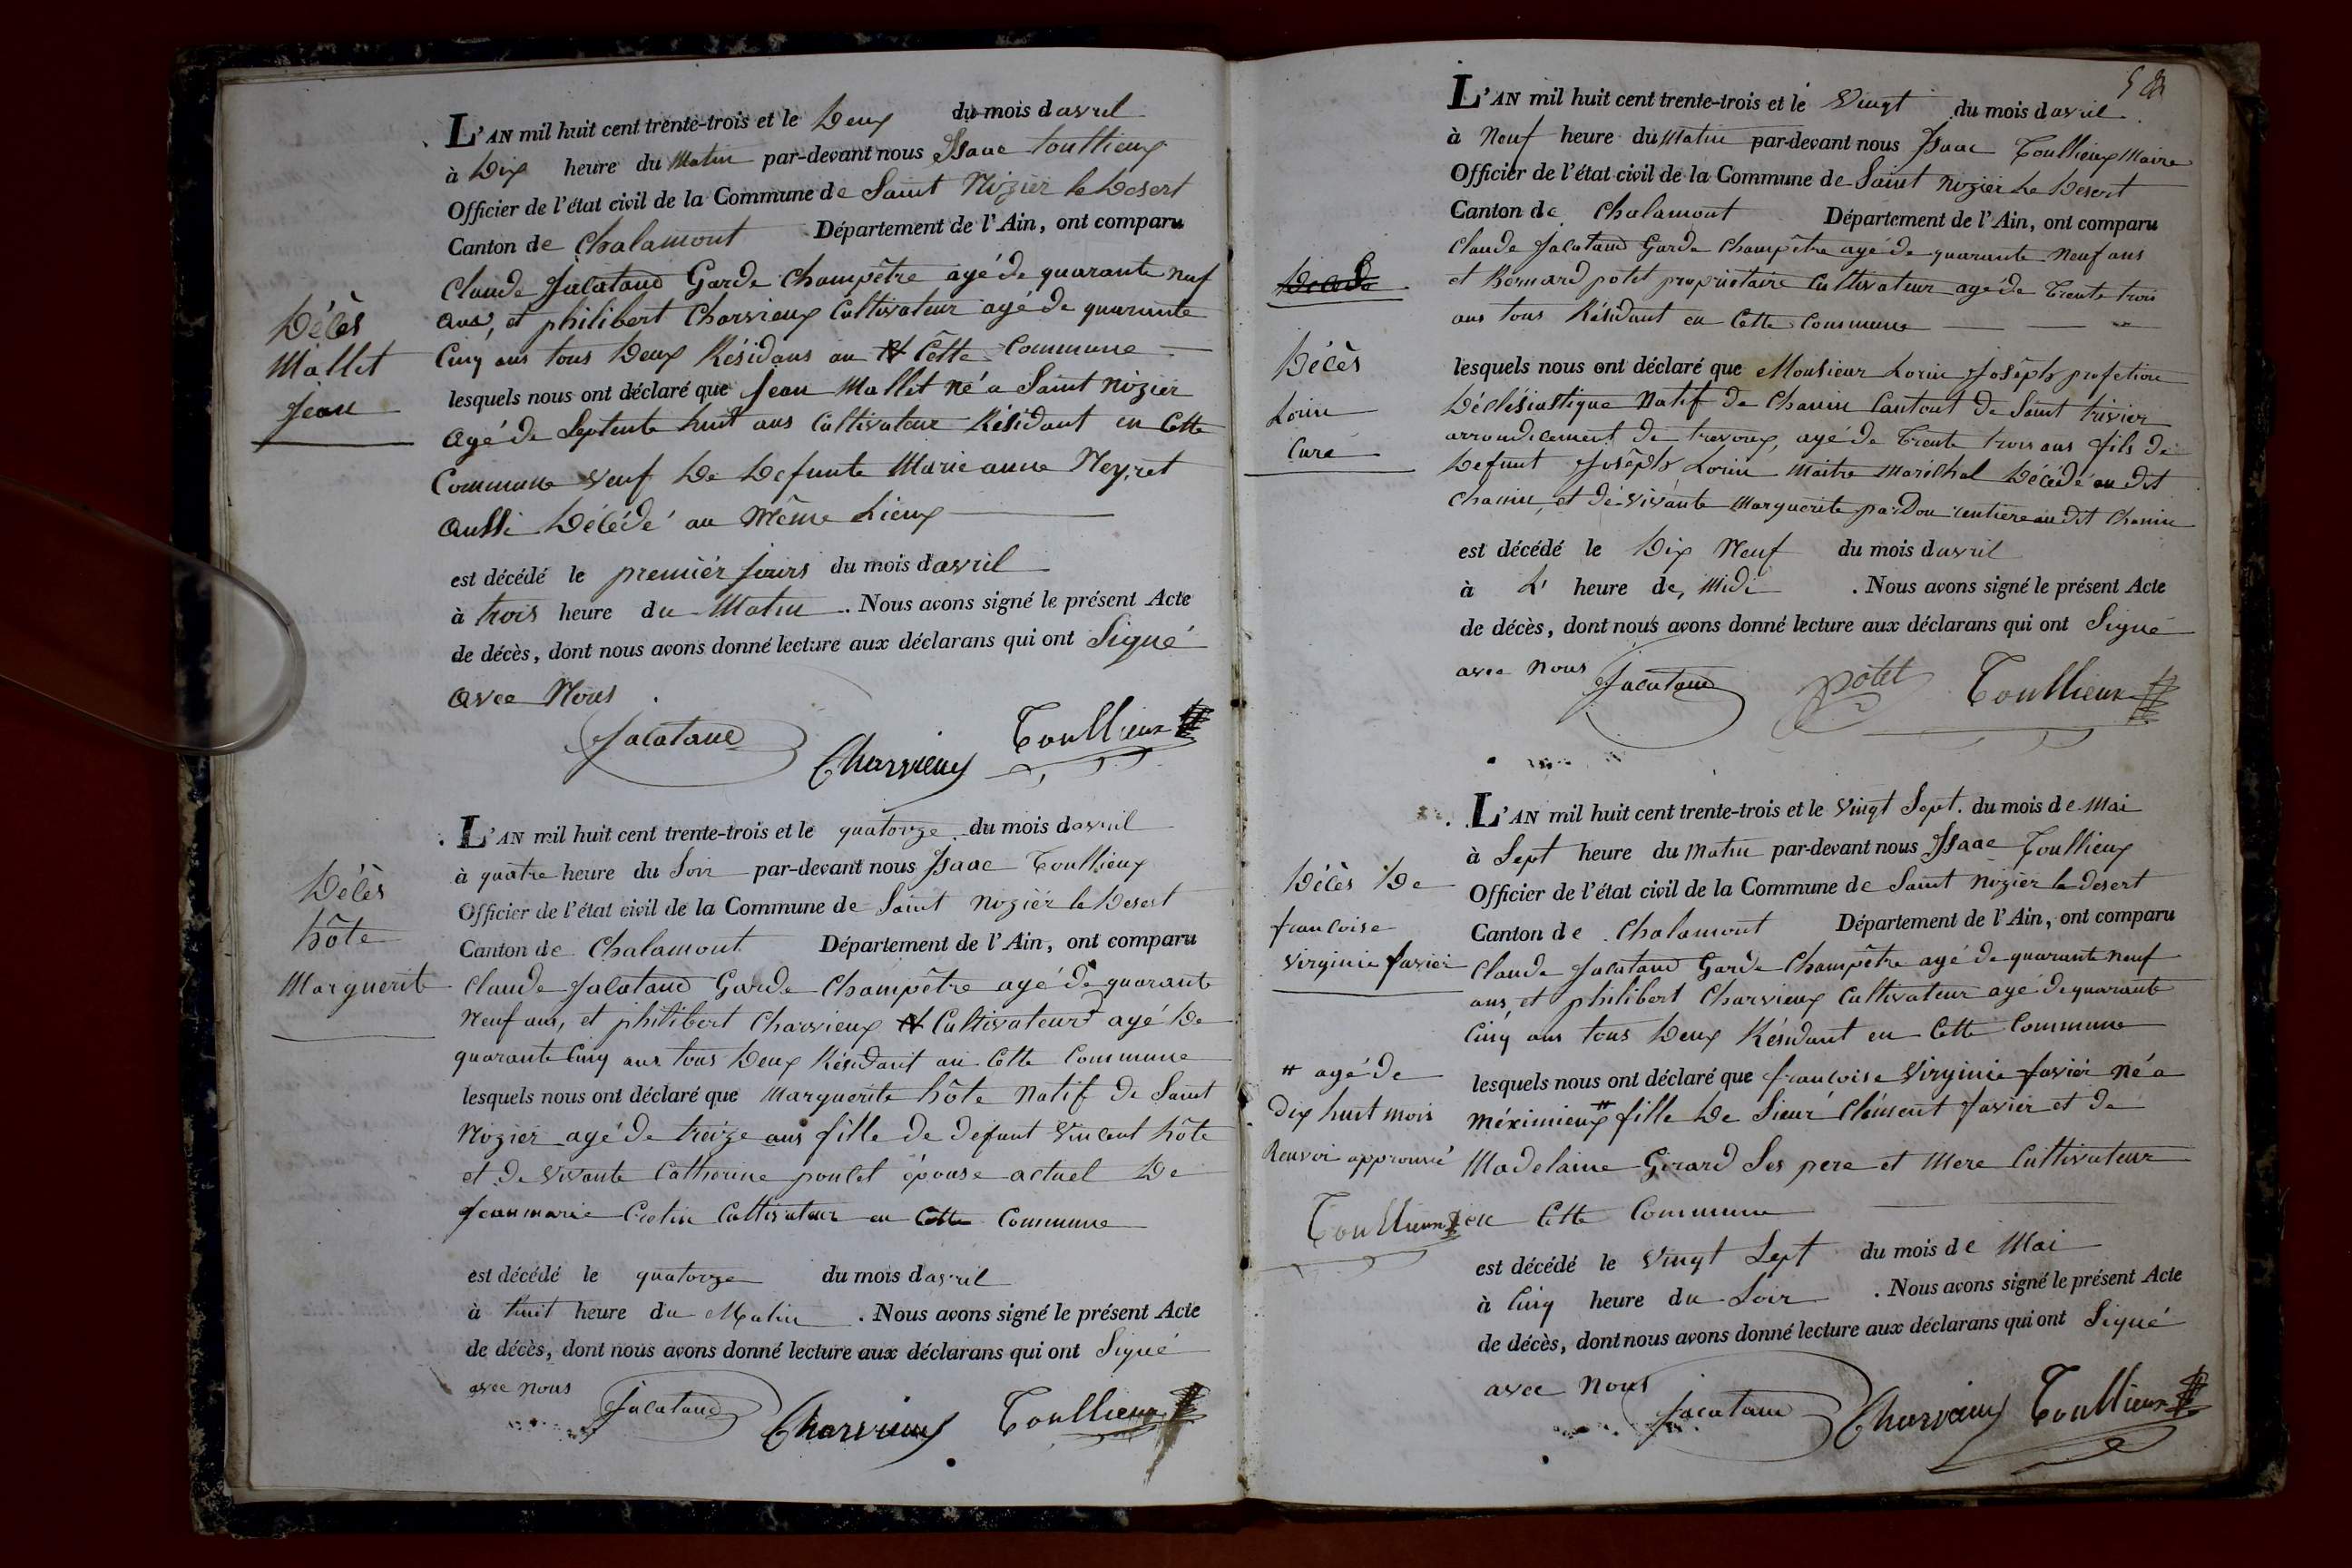 L'AN mil huit cent trente-trois et le Deux du mois d'avril
à Dix heure du Matin par-devant nous Isaac Toullieux
Officier de l'état civil de la Commune de Saint Nizier le Desert
Canton de Chalamont Département de l'Ain, ont comparu
Claude Jacataud Garde Champêtre agé de quarante neuf
ans, et philibert Charvieux Cultivateur agé de quarante
Cinq ans tous Deux Résidans au Cette Commune
Décès
Mallet
Jean
lesquels nous ont déclaré que Jean Mallet né a Saint Nizier
agé de Septente huit ans Cultivateur Résidant en Cette
Commune Veuf De Defunte Marie anne Neyret
aussi Décédé au Même Lieux
est décédé le premier jours du mois d'avril
à trois heure du Matin . Nous avons signé le présent Acte
de décès, dont nous avons donné lecture aux déclarans qui ont Signé
avec Nous
Jacataud Charvieux Toullieux
L'AN mil huit cent trente-trois et le quatorze du mois d'avril
à quatre heure du Soir par-devant nous Isaac Toullieux
Officier de l'état civil de la Commune de Saint Nizier le Desert
Canton de Chalamont Département de l'Ain, ont comparu
Décès
hôte
Marguerite
Claude Jacataud Garde Champêtre agé de quarante
Neuf ans, et philibert Charvieux Cultivateur agé De
quarante Cinq ans tous Deux Résidant au Cette Commune
lesquels nous ont déclaré que Marguerite hôte Natif de Saint
Nizier agé de treize ans fille de defunt Vincent hôte
et de Vivante Catherine poncet épouse actuel De
Jean marie Cretin Cultivateur en Cette Commune
est décédé le quatorze du mois d'avril
à huit heure du Matin . Nous avons signé le présent Acte
de décès, dont nous avons donné lecture aux déclarans qui ont Signé
avec nous
Jacataud Charvieux Toullieux
L'AN mil huit cent trente-trois et le Vingt du mois d'avril
à Neuf heure du Matin par-devant nous Isaac Toullieux Maire
Officier de l'état civil de la Commune de Saint Nizier Le Desert
Canton de Chalamont Département de l'Ain, ont comparu
Claude Jacataud Garde Champêtre agé de quarante Neuf ans
et Bernard potet propriétaire Cultivateur agé de Trente trois
ans tous Résidant en Cette Commune
Décès
Lorin
Curé
lesquels nous ont déclaré que Monsieur Lorin Joséph profetion
Décléziastique Natif de Chanin Cantont de Saint trivier
arrondicement de trevoux, agé de Trente trois ans fils de
Defunt Joséph Lorin Maitre Maréchal Décédé au dit
Chanin, et de vivante Marguerite pardon rentiere au dit Chanin
est décédé le Dix Neuf du mois d'avril
à L' heure de, Midi . Nous avons signé le présent Acte
de décès, dont nous avons donné lecture aux déclarans qui ont Signé
avec nous
Jacataud potet Toullieux
L'AN mil huit cent trente-trois et le Vingt Sept. du mois de Mai
à Sept heure du Matin par-devant nous Isaac Toullieux
Officier de l'état civil de la Commune de Saint Nizier le desert
Canton de Chalamont Département de l'Ain, ont comparu
Décès De
francoise
Virginie favier
Claude Jacataud Garde Champêtre agé de quarante neuf
ans, et philibert Charvieux Cultivateur agé de quarante
Cinq ans tous Deux Résidant en Cette Commune
lesquels nous ont déclaré que francoise Virginie favier né a
méximieux # fille De Sieur Clément favier et de
Madelaine Girard Ses pere et Mere Cultivateur
en Cette Commune
# agé de
Dix huit mois
Renvoi approuvé
Toullieux
est décédé le Vingt Sept du mois de Mai
à Cinq heure du Soir . Nous avons signé le présent Acte
de décès, dont nous avons donné lecture aux déclarans qui ont Signé
avec nous
Jacataud Charvieux Toullieux